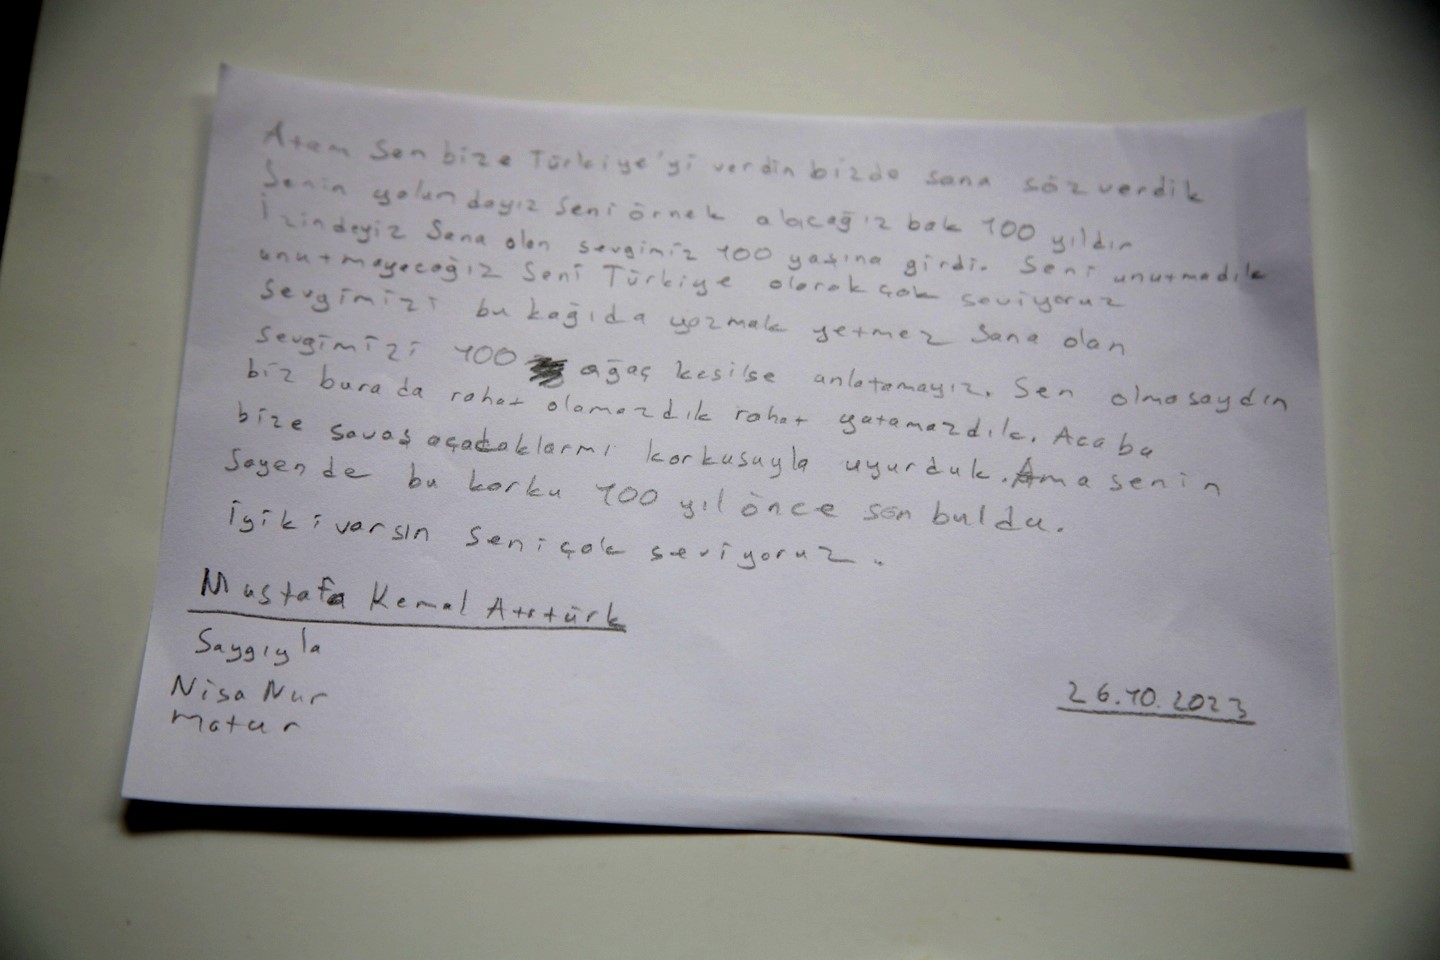 Atam Sen bize Türkiye'yi verdin bizde sana söz verdik
Senin yolundayız Seni örnek alacağız bak 100 yıldır
İzindeyiz Sana olan sevgimiz 100 yaşına girdi. Seni unutmadık
unutmayacağız Seni Türkiye olarak çok seviyoruz
Sevgimizi bu kağıda yazmak yetmez Sana olan
Sevgimizi 100 ağaç kesilse anlatamayız. Sen olmasaydın
biz burada rahat olamazdık rahat yatamazdık. Acaba
bize savaş açacaklarmı korkusuyla uyurduk. Ama senin
Sayende bu korku 100 yıl önce son buldu.
İyiki varsın Seni çok seviyoruz.
Mustafa Kemal Atatürk
Saygıyla
Nisa Nur
Matur
26.10.2023